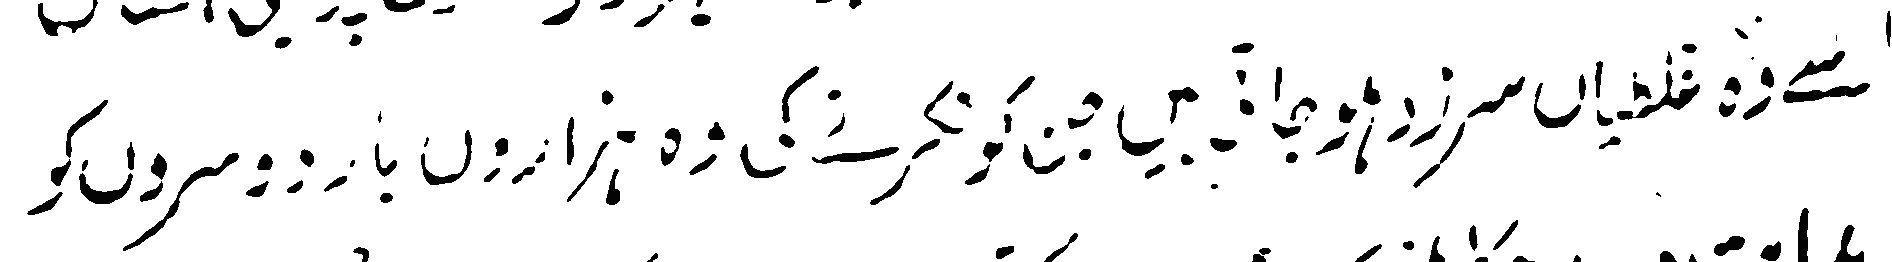 سے وہ غلطیاں سرزد ہو جاتی ہیں جن کو نکرنے کی وہ ہزاروں بار دوسروں کو